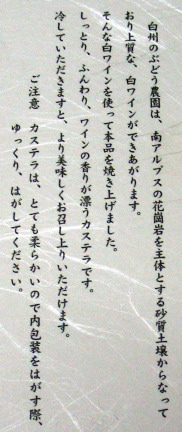 白州のぶどう農園は、南アルプスの花崗岩を主体とする砂質土壌からなって
おり上質な、白ワインができあがります。
そんな白ワインを使って本品を焼き上げました。
しっとり、ふんわり、ワインの香りが漂うカステラです。
冷していただきますと、より美味しくお召し上りいただけます。
ご注意 カステラは、とても柔らかいので内包装をはがす際、
ゆっくり、はがしてください。